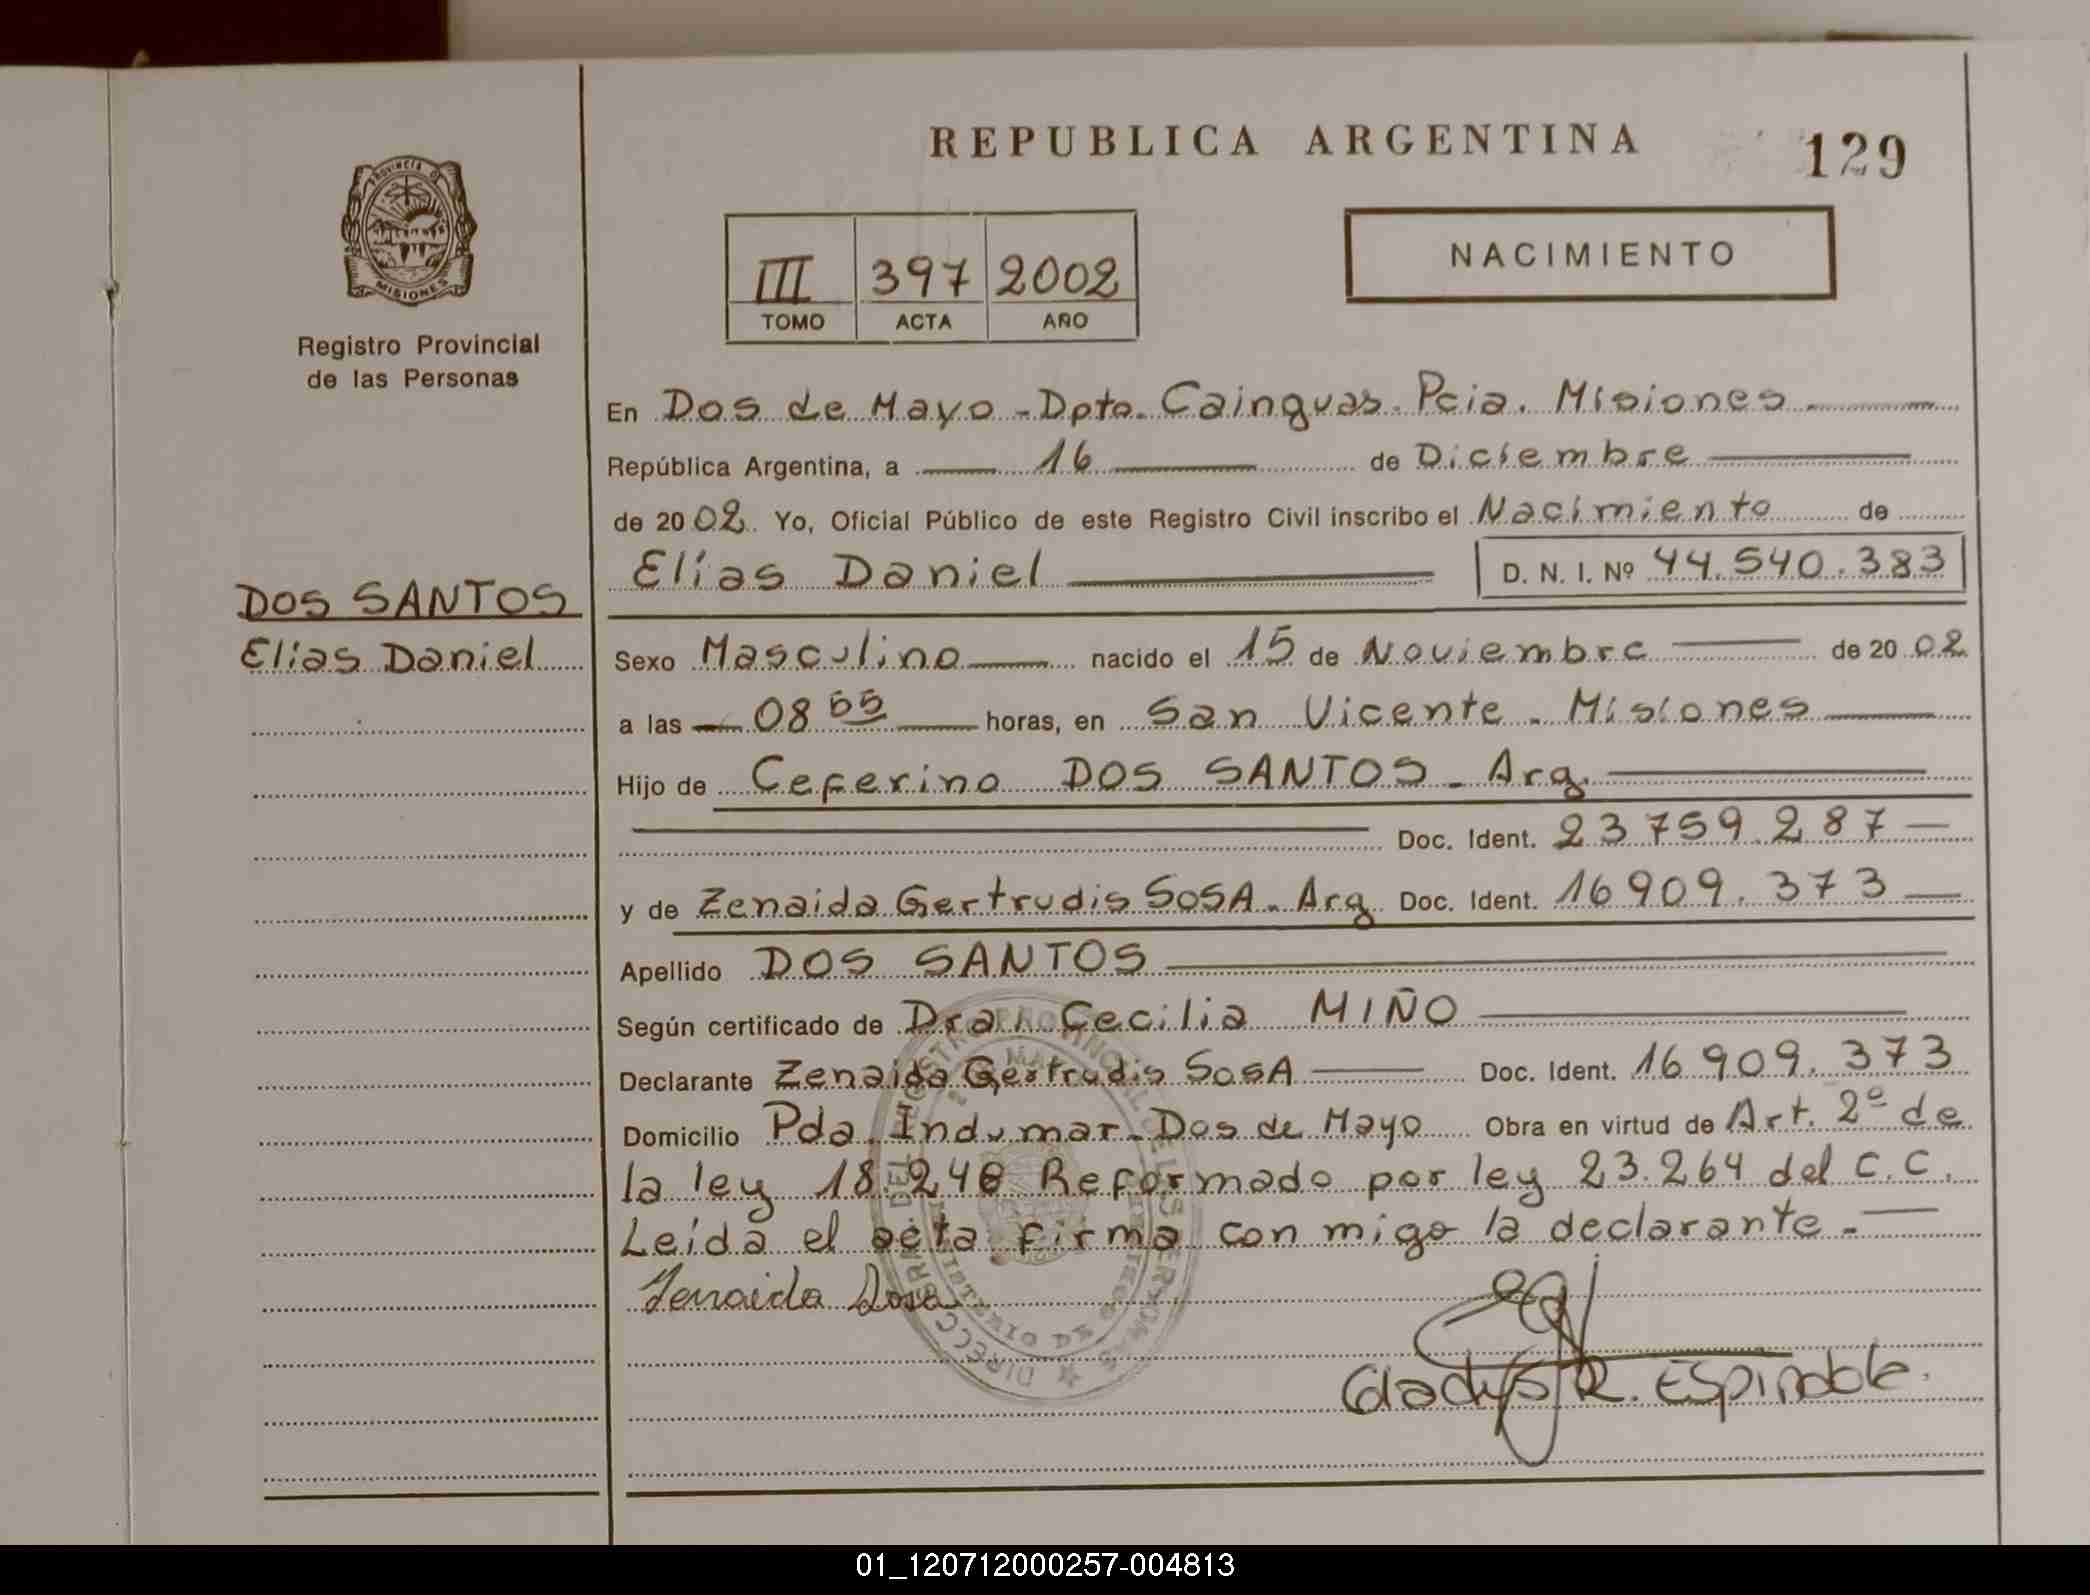 REPUBLICA ARGENTINA
129
PROVINCIA DE
MISIONES
Registro Provincial
de las Personas
III 397 2002
TOMO ACTA AÑO
NACIMIENTO
En Dos de Mayo - Dpto. Cainguas. Pcia. Misiones
República Argentina, a 16 de Diciembre
de 2002. Yo, Oficial Público de este Registro Civil inscribo el Nacimiento de
Elías Daniel D. N. I. Nº 44.540.383
DOS SANTOS
Elias Daniel
Sexo Masculino nacido el 15 de Noviembre de 2002
a las 08 55 horas, en San Vicente - Misiones
Hijo de Ceferino DOS SANTOS - Arg.
Doc. Ident. 23759.287
y de Zenaida Gertrudis SOSA - Arg Doc. Ident. 16909.373
Apellido DOS SANTOS
Según certificado de Dra. Cecilia MIÑO
Declarante Zenaida Gertrudis SOSA Doc. Ident. 16909.373
Domicilio Pda. Indumar - Dos de Mayo Obra en virtud de Art. 2º de
la ley 18.248 Reformado por ley 23.264 del C.C.
Leida el acta firma con migo la declarante.
Zenaida Sosa
Gladys R. Espindola.
01_120712000257-004813